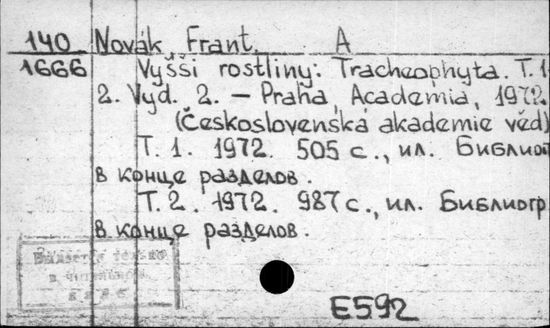 140 Novák, Frant. A
1666 Vyšší rostliny: Tracheophyta. T. 1
2. Vyd. 2. – Praha, Academia, 1972
(Československá akademie věd)
Т. 1. 1972. 505 с., ил. Библиог
в конце разделов.
Т. 2. 1972. 987 с., ил. Библиогр
в конце разделов.
только
E592